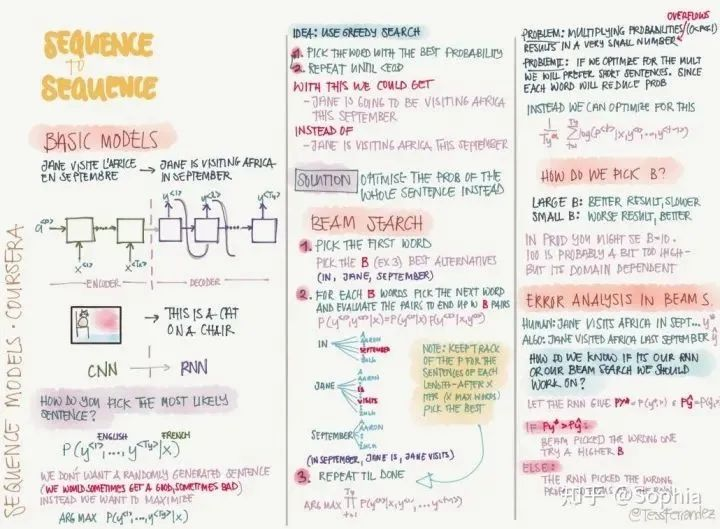 SEQUENCE
TO
SEQUENCE
BASIC MODELS
JANE VISITE L'AFRICE
EN SEPTEMBRE → JANE IS VISITING AFRICA
IN SEPTEMBER
y<1> y<2> y<Ty>
a<0>
x<1> x<Tx>
ENCODER DECODER
THIS IS A CAT
ON A CHAIR
CNN RNN
HOW DO YOU PICK THE MOST LIKELY
SENTENCE?
ENGLISH FRENCH
P(y<1>,..., y<Ty>|x)
WE DON'T WANT A RANDOMLY GENERATED SENTENCE
(WE WOULD SOMETIMES GET A GOOD, SOMETIMES BAD)
INSTEAD WE WANT TO MAXIMIZE
ARG MAX P(y<1>,...,y<Ty>|x)
SEQUENCE MODELS · COURSERA
IDEA: USE GREEDY SEARCH
1. PICK THE WORD WITH THE BEST PROBABILITY
2. REPEAT UNTIL <EOS>
WITH THIS WE COULD GET
- JANE IS GOING TO BE VISITING AFRICA
THIS SEPTEMBER
INSTEAD OF
- JANE IS VISITING AFRICA THIS SEPTEMBER
SOLUTION OPTIMISE THE PROB OF THE
WHOLE SENTENCE INSTEAD
BEAM SEARCH
1. PICK THE FIRST WORD
PICK THE B (EX 3) BEST ALTERNATIVES
(IN, JANE, SEPTEMBER)
2. FOR EACH B WORDS PICK THE NEXT WORD
AND EVALUATE THE PAIRS TO END UP W B PAIRS
IN
A
AARON
SEPTEMBER
ZULU
JANE
A
AARON
IS
VISITS
ZULU
SEPTEMBER
A
AARON
ZULU
NOTE: KEEP TRACK
OF THE P FOR THE
SENTENCES OF EACH
LENGTH - AFTER X
ITER (X MAX WORDS)
PICK THE BEST
(IN SEPTEMBER, JANE IS, JANE VISITS)
3. REPEAT TIL DONE
OVERFLOWS
PROBLEM: MULTIPLYING PROBABILITIES
RESULTS IN A VERY SMALL NUMBER
PROBLEM II: IF WE OPTIMIZE FOR THE MULT
WE WILL PREFER SHORT SENTENCES. SINCE
EACH WORD WILL REDUCE PROB
INSTEAD WE CAN OPTIMIZE FOR THIS
HOW DO WE PICK B?
LARGE B: BETTER RESULT, SLOWER
SMALL B: WORSE RESULT, BETTER
IN PROD YOU MIGHT SE B=10.
100 IS PROBABLY A BIT TOO HIGH-
BUT ITS DOMAIN DEPENDENT
ERROR ANALYSIS IN BEAM S.
HUMAN: JANE VISITS AFRICA IN SEPT... y*
ALGO: JANE VISITED AFRICA LAST SEPTEMBER ŷ
HOW DO WE KNOW IF ITS OUR RNN
OR OUR BEAM SEARCH WE SHOULD
WORK ON?
LET THE RNN GIVE
IF Py* > Pŷ:
BEAM PICKED THE WRONG ONE
TRY A HIGHER B
ELSE:
THE RNN PICKED THE WRONG
知乎 @Sophia
@TessFerrandez